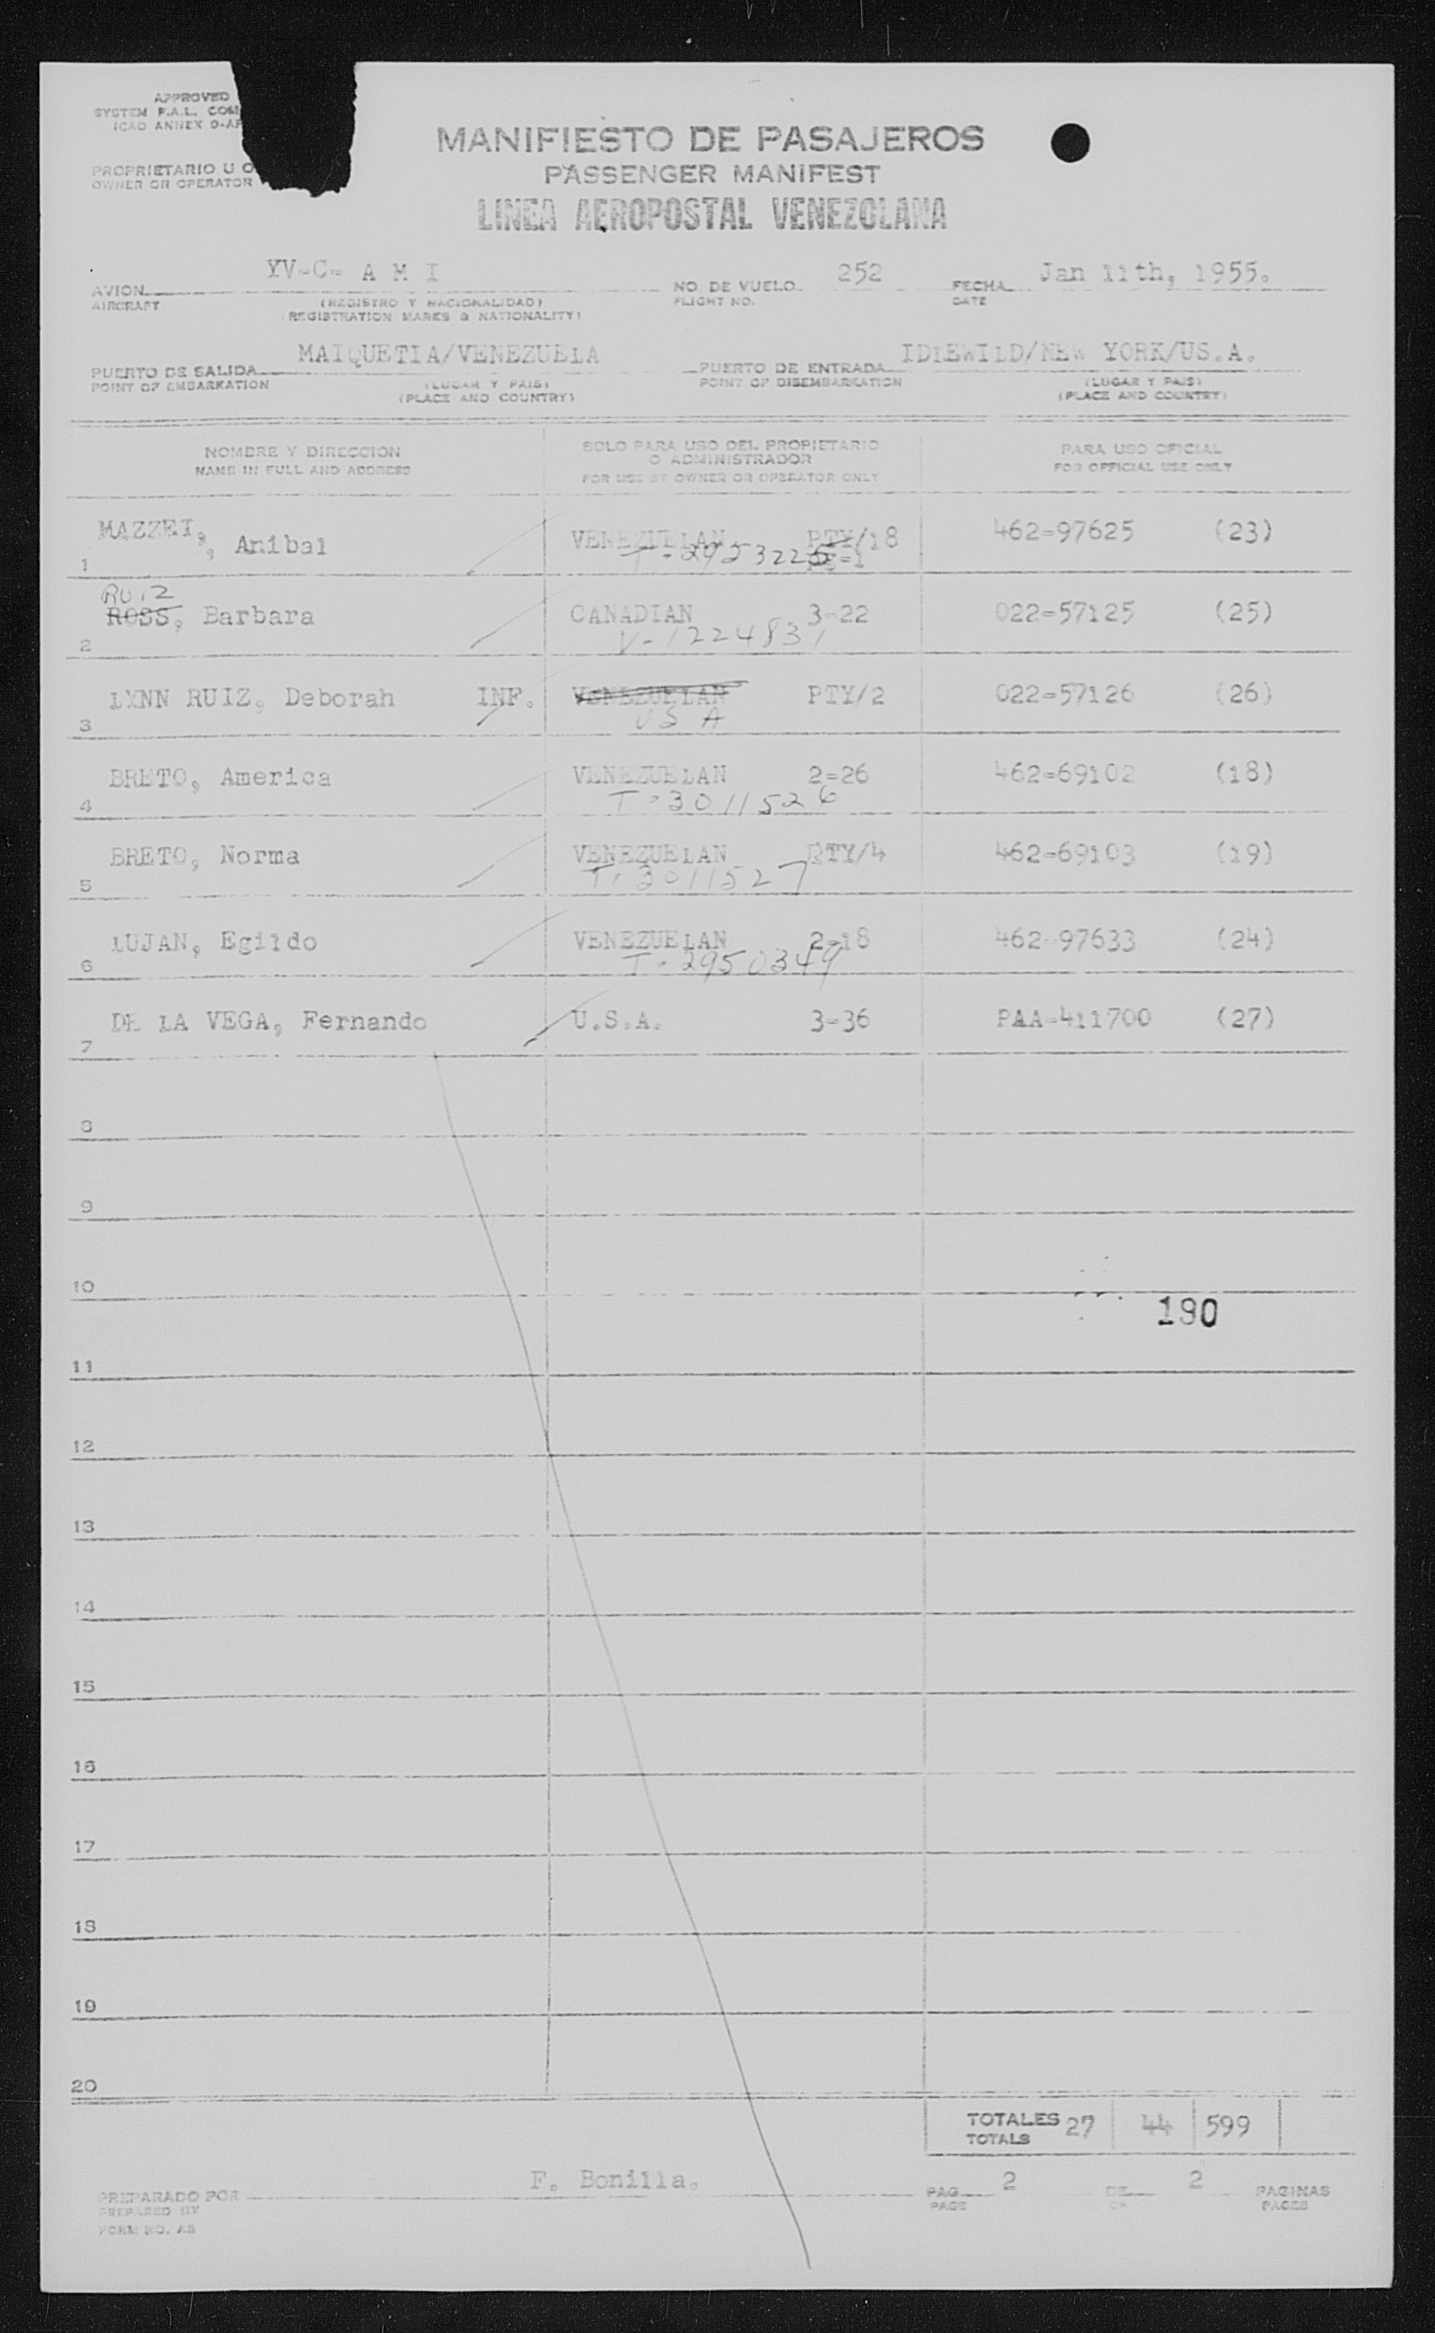 APPROVED
SYSTEM F.A.L. COM
ICAO ANNEX 9-AP
MANIFIESTO DE PASAJEROS
PROPRIETARIO U O
PASSENGER MANIFEST
OWNER OR OPERATOR
LINEA AEROPOSTAL VENEZOLANA
YV-C- A M I 252 Jan 11th, 1955.
AVION NO. DE VUELO FECHA
AIRCRAFT (REGISTRO Y NACIONALIDAD) FLIGHT NO. DATE
(REGISTRATION MARKS & NATIONALITY)
MAIQUETIA/VENEZUELA IDLEWILD/NEW YORK/US.A.
PUERTO DE SALIDA PUERTO DE ENTRADA
POINT OF EMBARKATION (LUGAR Y PAIS) POINT OF DISEMBARKATION (LUGAR Y PAIS)
(PLACE AND COUNTRY) (PLACE AND COUNTRY)
NOMBRE Y DIRECCION SOLO PARA USO DEL PROPIETARIO PARA USO OFICIAL
NAME IN FULL AND ADDRESS O ADMINISTRADOR FOR OFFICIAL USE ONLY
FOR USE BY OWNER OR OPERATOR ONLY
MAZZEI,, Anibal VENEZUELAN PTY/18 462=97625 (23)
1 T-2953225 =1
RUIZ
ROSS, Barbara CANADIAN 3-22 022=57125 (25)
2 V-1224831
LYNN RUIZ, Deborah INF. VENEZUELAN PTY/2 022=57126 (26)
3 USA
BRETO, America VENEZUELAN 2=26 462=69102 (18)
4 T-3011526
BRETO, Norma VENEZUELAN PTY/4 462=69103 (19)
5 T-3011527
LUJAN, Egildo VENEZUELAN 2-18 462-97633 (24)
6 T-2950349
DE LA VEGA, Fernando U.S.A. 3-36 PAA-411700 (27)
7
8
9
10
190
11
12
13
14
15
16
17
18
19
20
TOTALES 27 44 599
TOTALS
F. Bonilla. 2 2
PREPARADO POR PAG. DE PAGINAS
PREPARED BY PAGE OF PAGES
FORM NO. AS